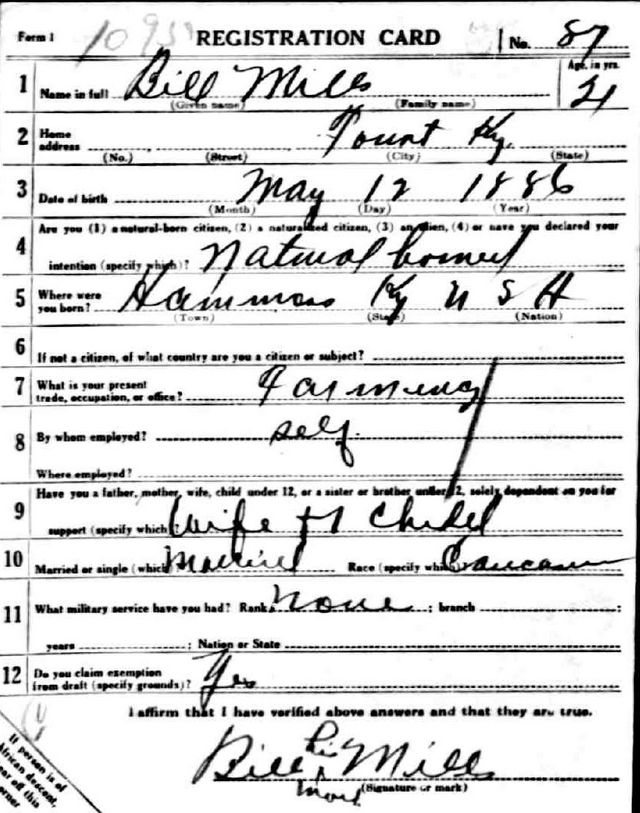 Form 1 REGISTRATION CARD No. 87
1 Name in full Bill Mills Age, in yrs. 21
(Given name) (Family name)
2 Home address Yount Ky.
(No.) (Street) (City) (State)
3 Date of birth May 12 1886
(Month) (Day) (Year)
Are you (1) a natural-born citizen, (2) a naturalized citizen, (3) an alien, (4) or have you declared your
4 intention (specify which)? Natural borned
5 Where were you born? Ky U S A
(Town) (State) (Nation)
6 If not a citizen, of what country are you a citizen or subject?
7 What is your present trade, occupation, or office? Farming
8 By whom employed? self.
Where employed?
9 Have you a father, mother, wife, child under 12, or a sister or brother under 12, solely dependent on you for
support (specify which)? Wife + 1 Child
10 Married or single (which)? Married Race (specify which)? Caucasian
11 What military service have you had? Rank None ; branch
years ; Nation or State
12 Do you claim exemption from draft (specify grounds)? Yes
I affirm that I have verified above answers and that they are true.
Bill his Mills
mark (Signature or mark)
If person is of
African descent,
tear off this
corner